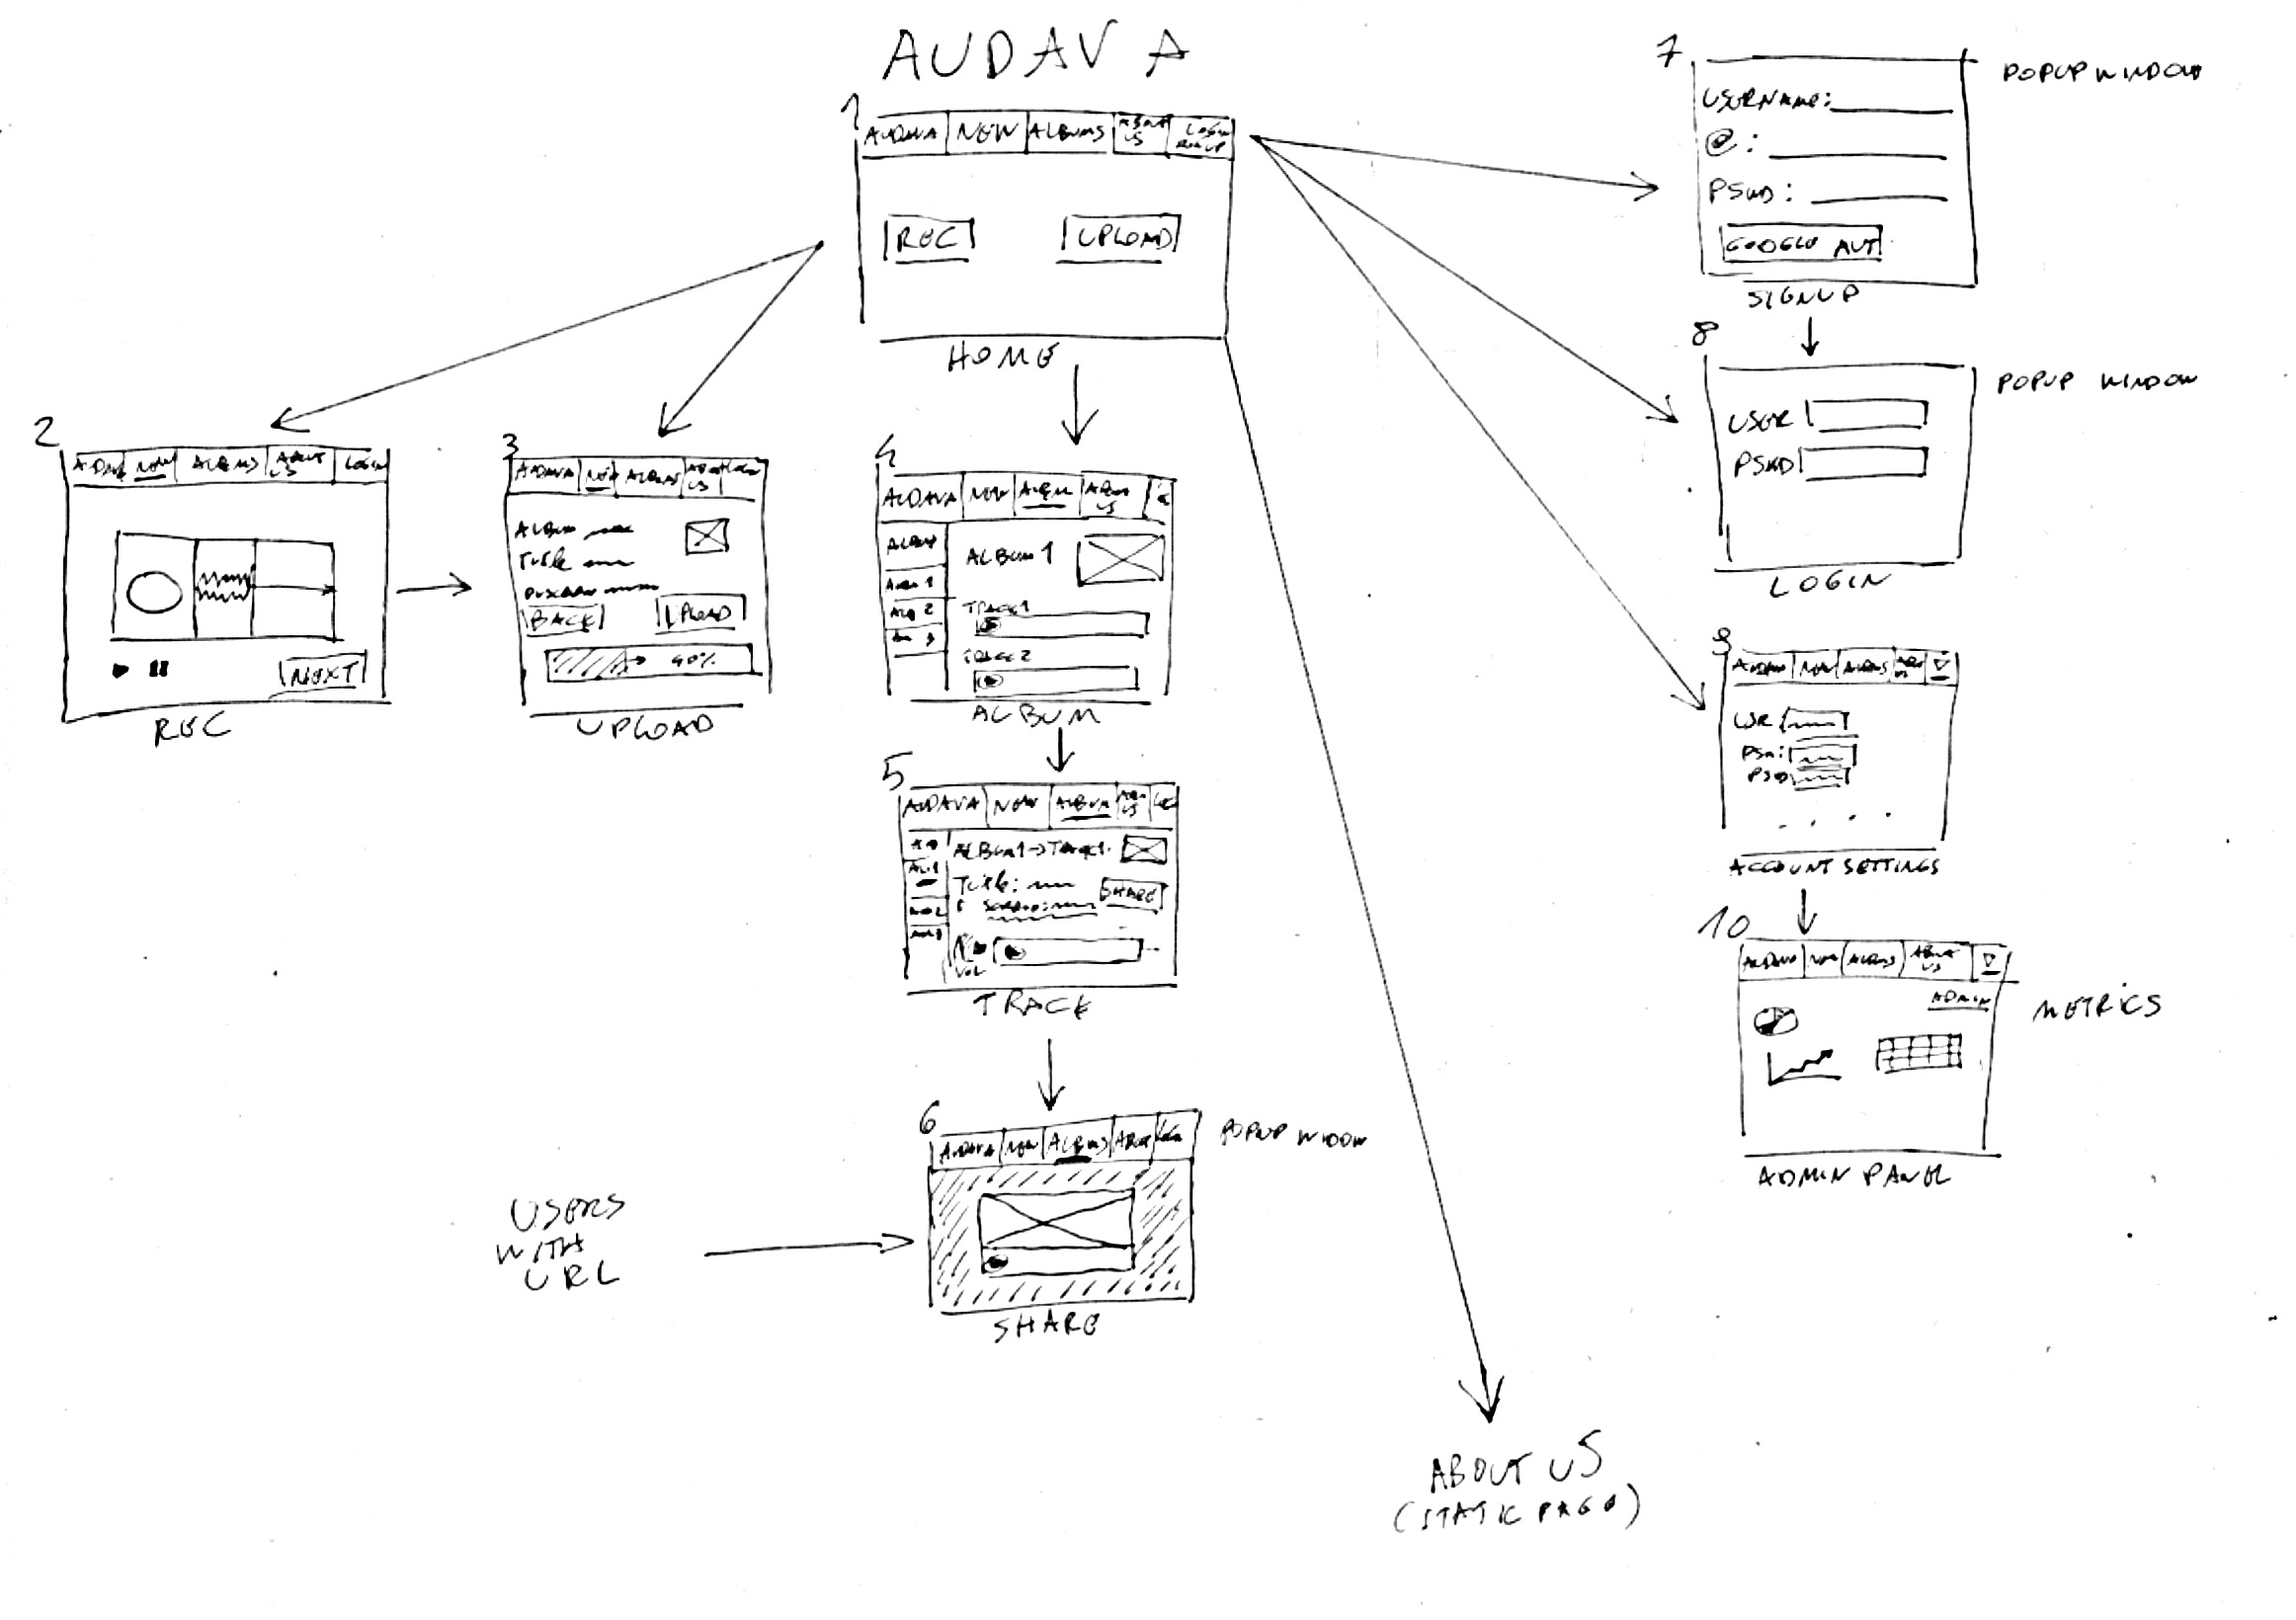 AUDAVA
1
AUDAVA NEW ALBUMS ABOUT US LOGIN SIGNUP
REC UPLOAD
HOME
2
NEW ALBUMS ABOUT US LOGIN
NEXT
REC
3
AUDAVA NEW ALBUMS ABOUT US
ALBUM
TITLE
BACK UPLOAD
40%
UPLOAD
4
AUDAVA NEW ALBUM ABOUT US
ALBUM
ALBUM 1
ALB 2
ALBUM 1
TRACK 1
TRACK 2
ALBUM
5
AUDAVA NEW ALBUM US
ALBUM1→TRACK1
TITLE:
SHARE
VOL
TRACK
6
AUDAVA NEW ALBUMS ABOUT
POPUP WIDOW
SHARE
USERS
WITH
URL
ABOUT US
(STATIC PAGE)
7
POPUP WINDOW
USERNAME:
@:
PSWD:
GOOGLE AUT
SIGNUP
8
POPUP WINDOW
USER
PSWD
LOGIN
9
AUDAVA NEW ALBUMS
ACCOUNT SETTINGS
10
AUDAVA NEW ALBUMS ABOUT US
ADMIN
METRICS
ADMIN PANEL